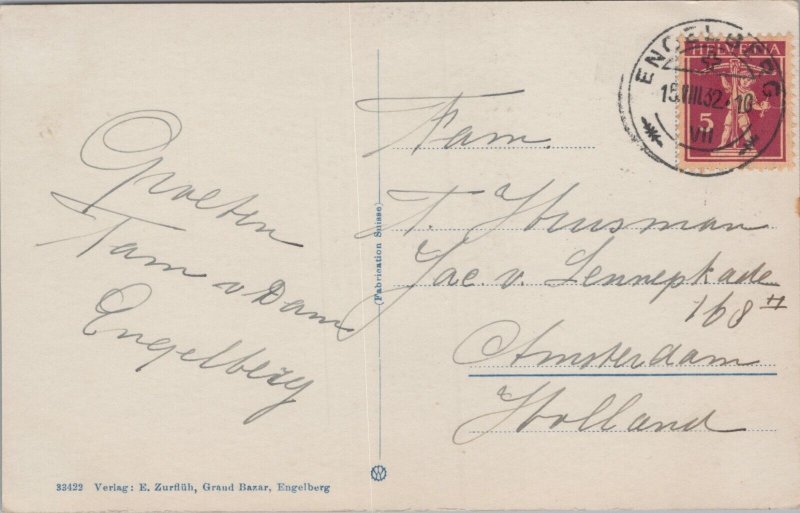 Groeten
Fam v Dam
Engelberg
(Fabrication Suisse)
Fam.
T. Huisman
Jac. v. Lennepkade
168 II
Amsterdam
Holland
HELVETIA
5
ENGELBERG
15.VIII.32.-10
VII
33422 Verlag: E. Zurflüh, Grand Bazar, Engelberg